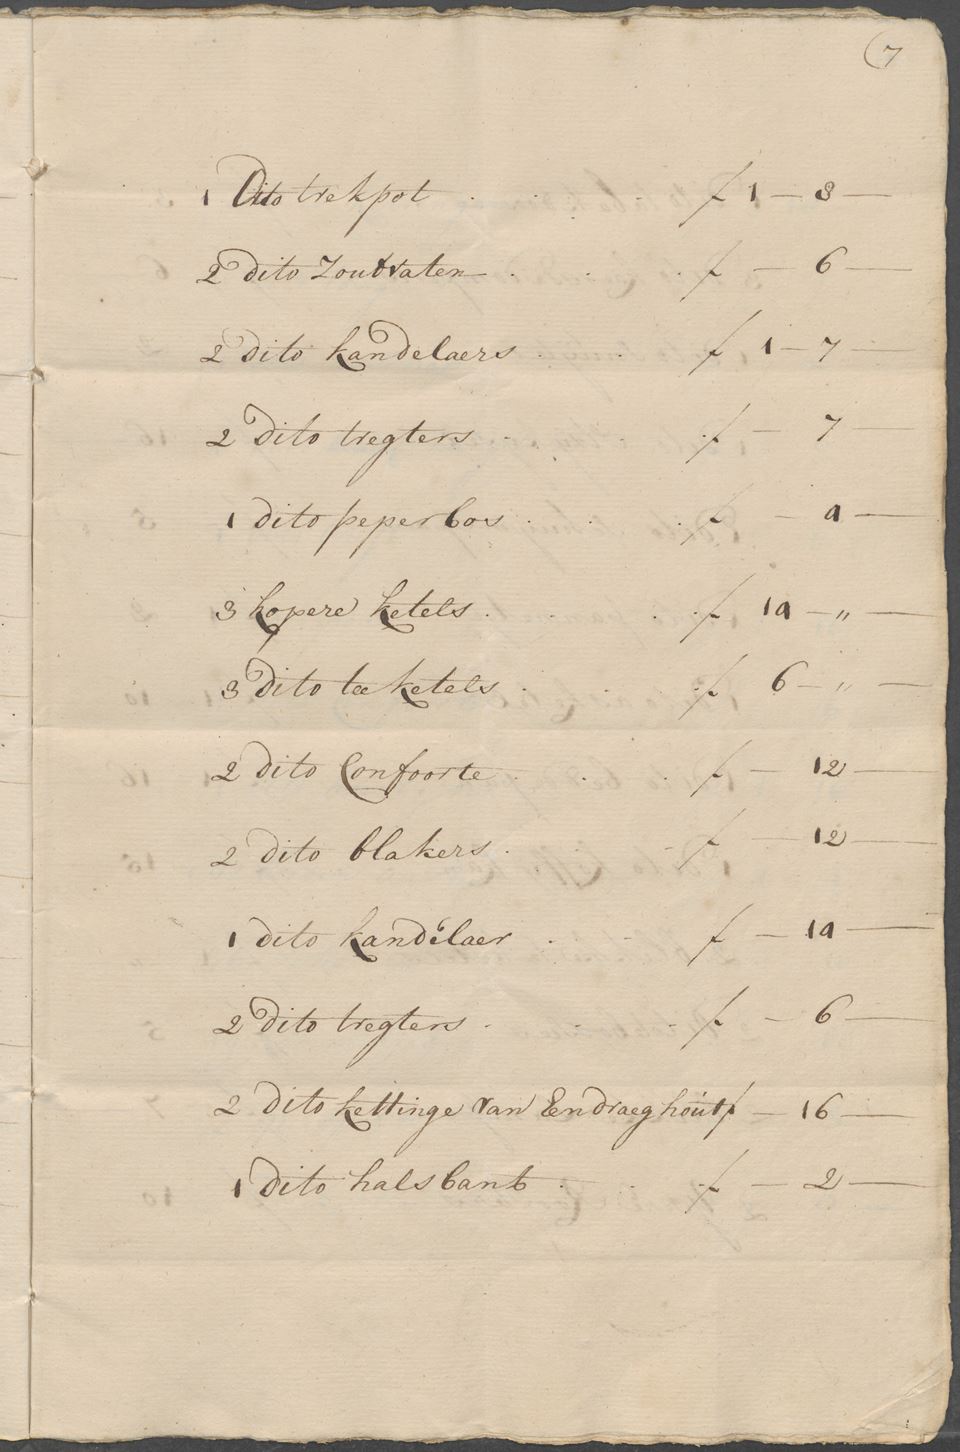 7
1 Dito trekpot . . . f 1 — 8 —
2 dito Zoutvaten . . . f — 6 —
2 dito kandelaers . . . f 1 — 7 —
2 dito tregters . . . f — 7 —
1 dito peperbos . . . f — 9 —
3 kopere ketels . . . f 19 — „ —
3 dito tee ketels . . . f 6 — „ —
2 dito Confoorte . . . f — 12 —
2 dito blakers . . . f — 12 —
1 dito kandelaer . . . f — 19 —
2 dito tregters . . . f — 6 —
2 dito kettinge van Eendraeghout f — 16 —
1 dito halsbant . . . f — 2 —